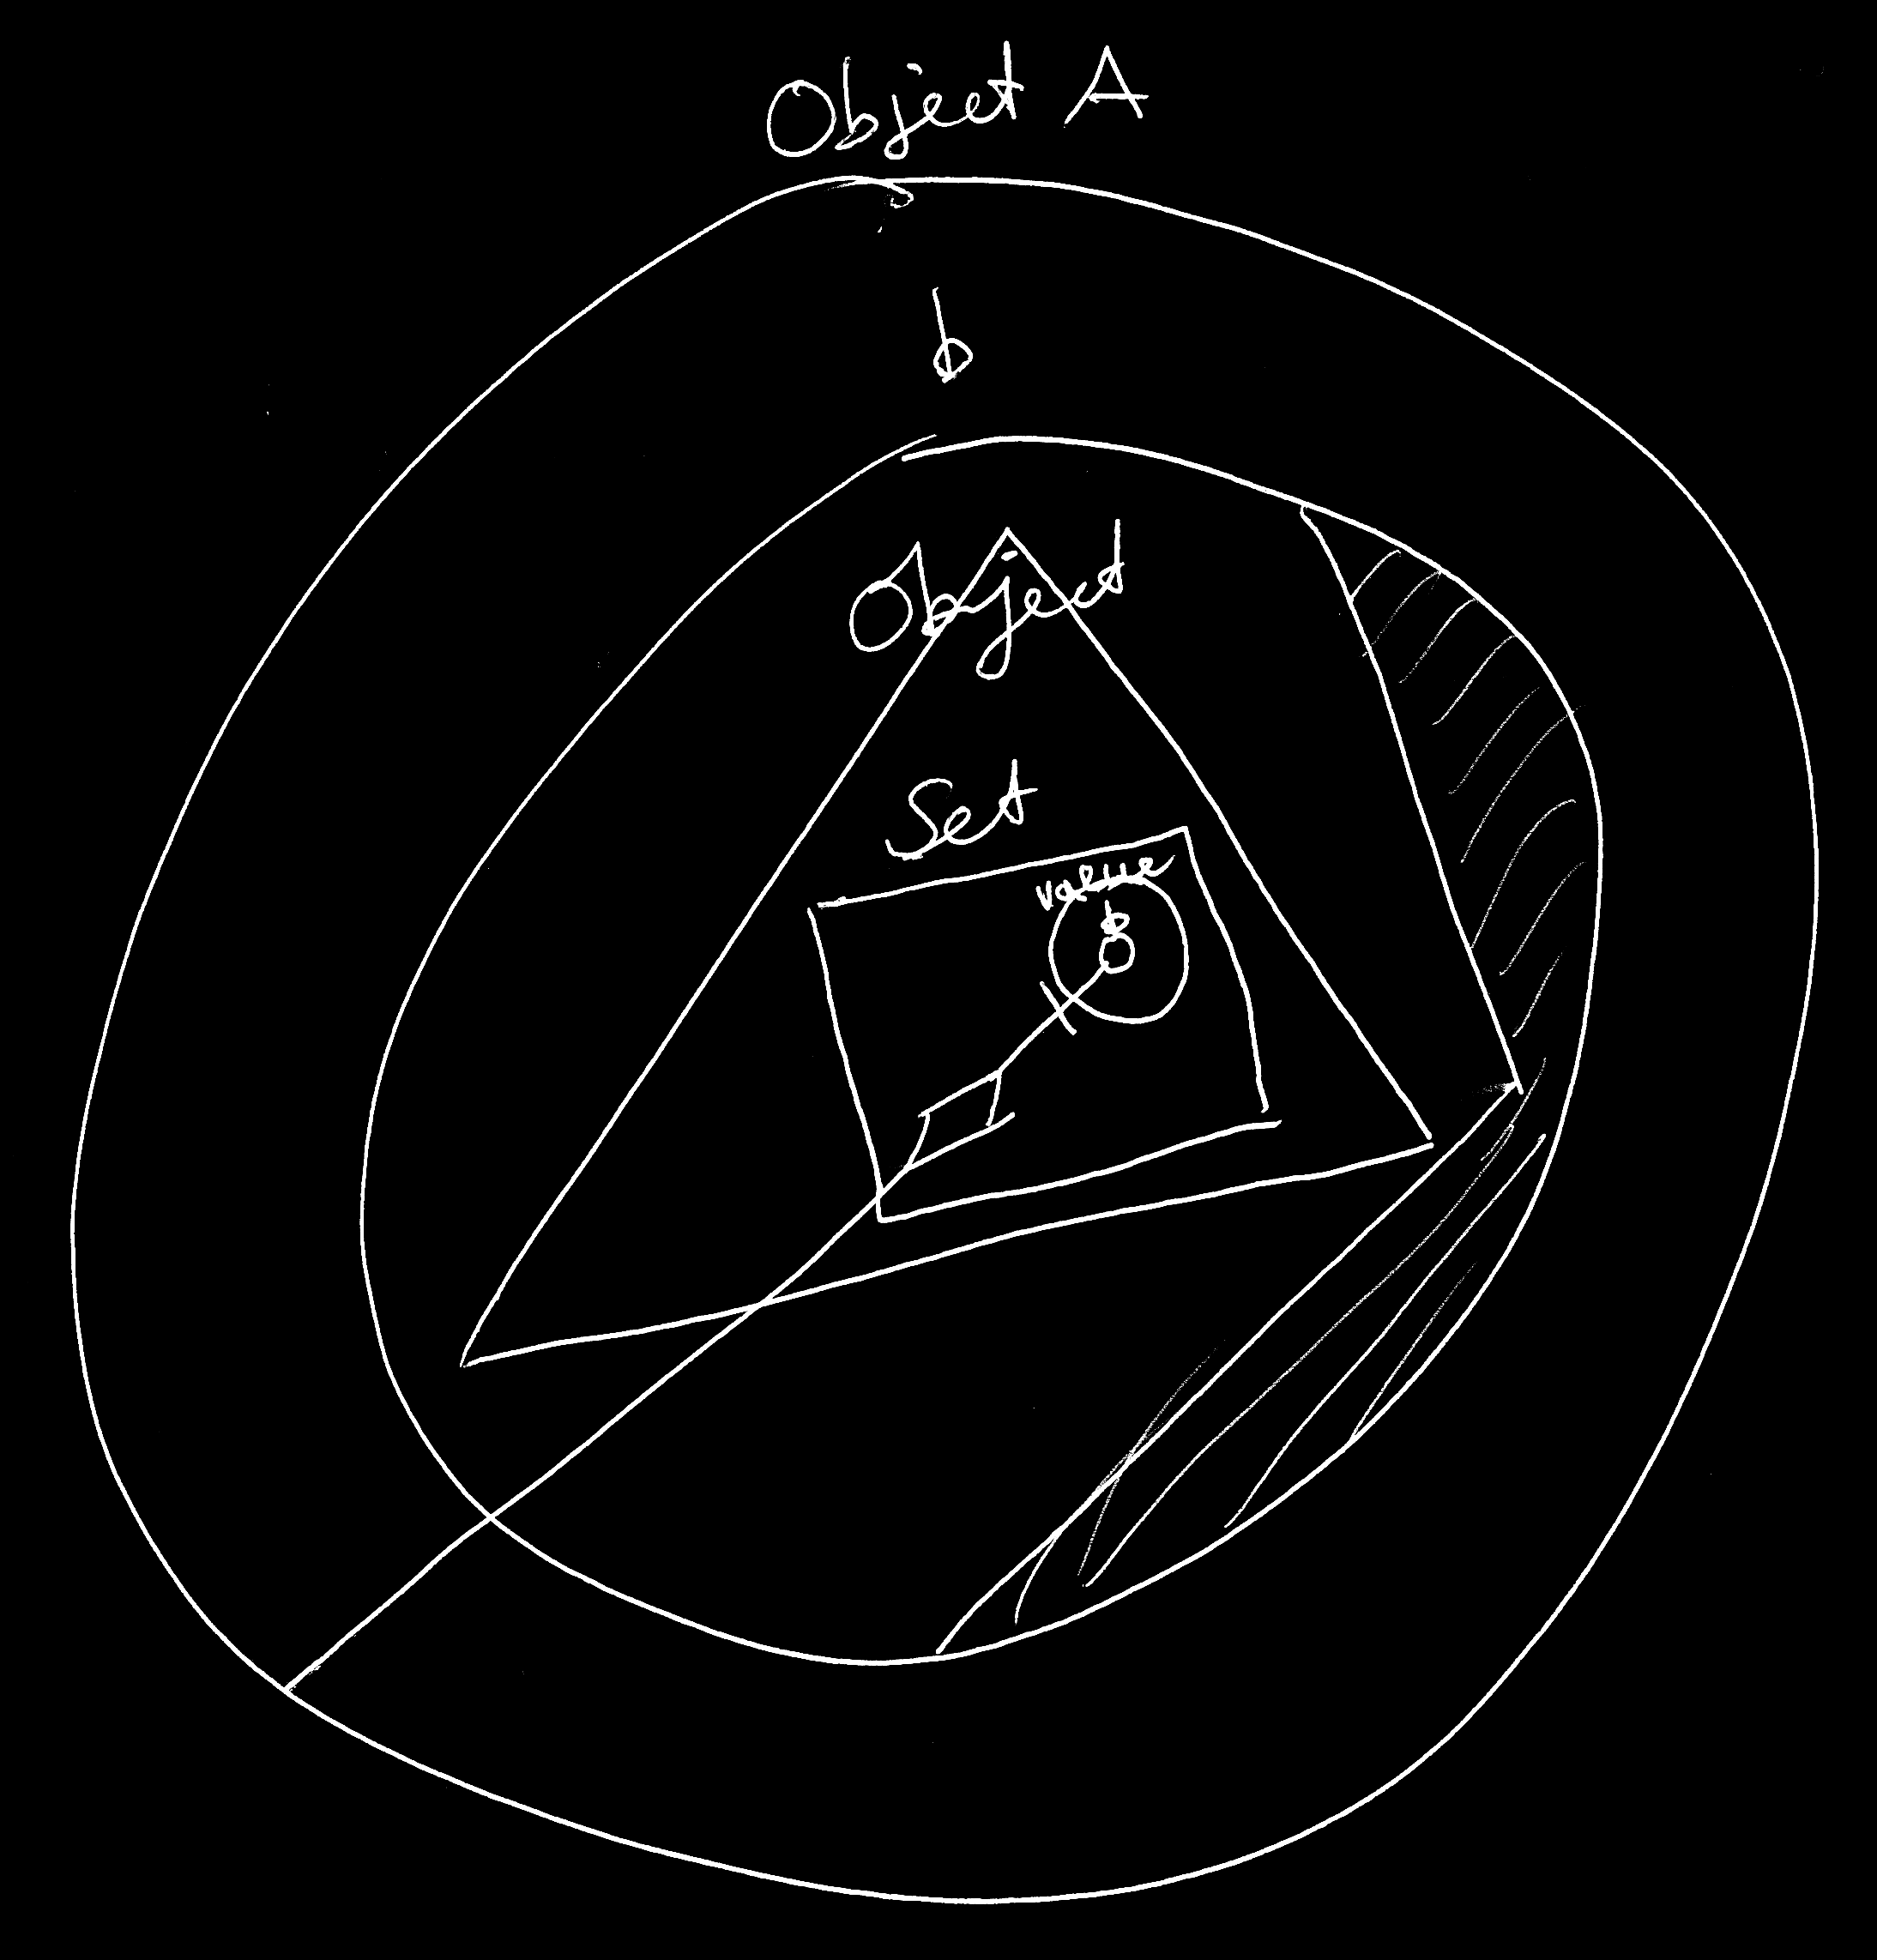 Object A
b
Object
Set
value
b